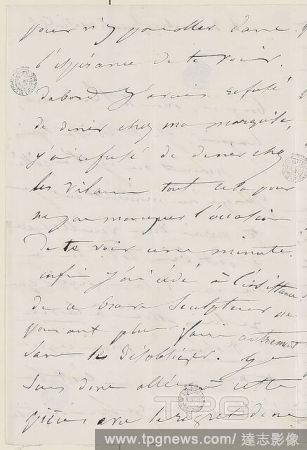 pour n'y pas aller dans
l'espérance de te voir.
d'abord j'avais refusé
de diner chez ma marquise,
j'ai refusé de diner chez
les Vilain tout cela pour
ne pas manquer l'occasion
de te voir une minute.
enfin j'ai cédé à l'insistance
de ce brave sculpteur ne
pouvant plus faire autrement
sans le désobliger. Je
suis donc allée à cette
pièce avec le regret de ne
TPG
www.tpgnews.com / 達志影像